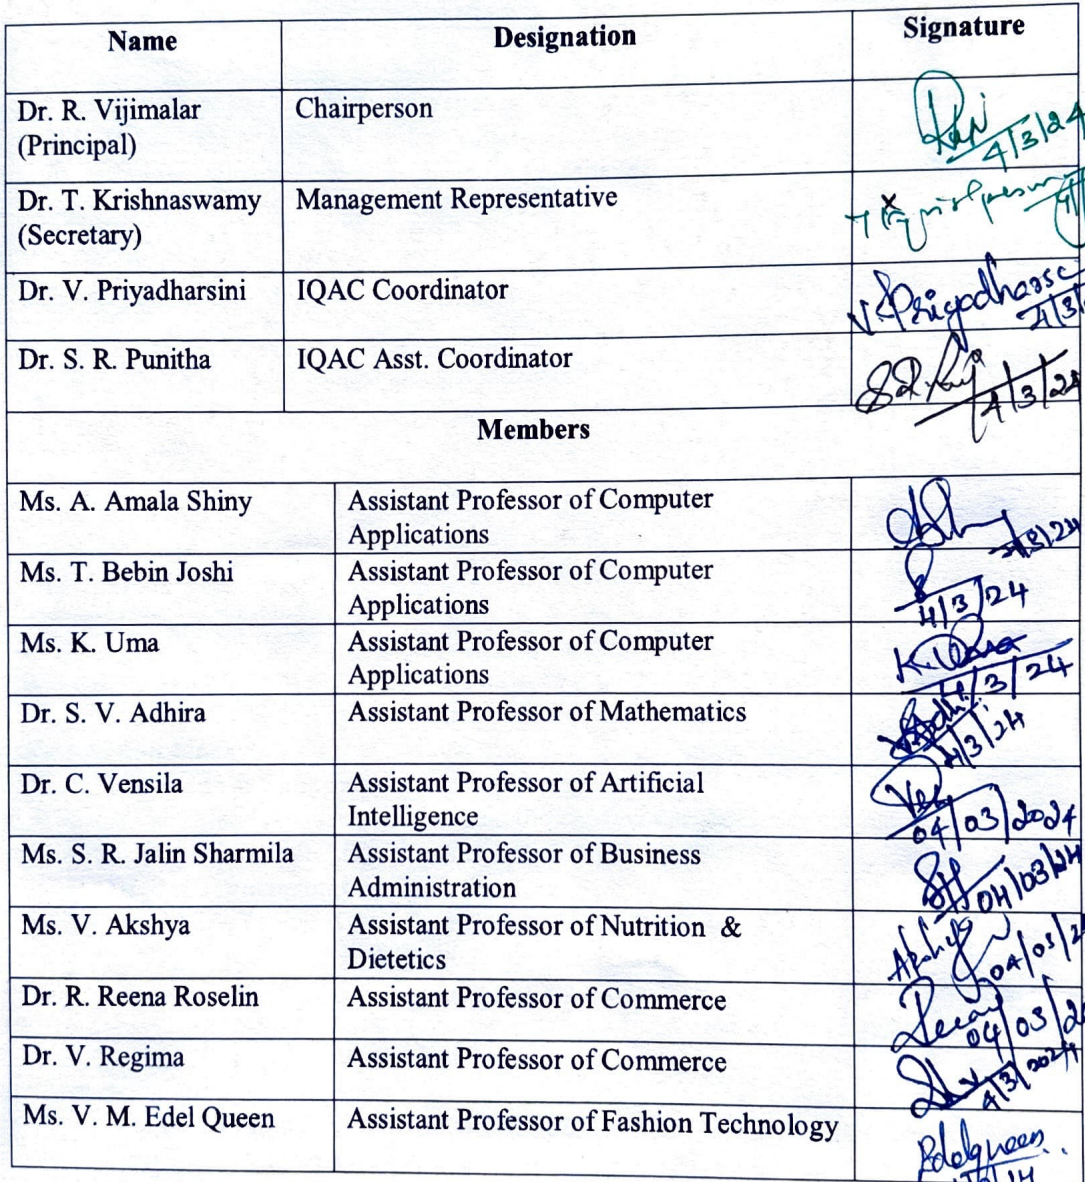 Name Designation Signature
Dr. R. Vijimalar Chairperson
(Principal)
4/3/24
Dr. T. Krishnaswamy Management Representative
(Secretary)
Dr. V. Priyadharsini IQAC Coordinator V. Priyadharsc
4/3/
Dr. S. R. Punitha IQAC Asst. Coordinator
4/3/24
Members
Ms. A. Amala Shiny Assistant Professor of Computer
Applications
Ms. T. Bebin Joshi Assistant Professor of Computer
Applications 4/3/24
Ms. K. Uma Assistant Professor of Computer K. Uma
Applications 4/3/24
Dr. S. V. Adhira Assistant Professor of Mathematics
4/3/24
Dr. C. Vensila Assistant Professor of Artificial
Intelligence 04/03/2024
Ms. S. R. Jalin Sharmila Assistant Professor of Business
Administration 04/03/24
Ms. V. Akshya Assistant Professor of Nutrition &
Dietetics 04/03/2
Dr. R. Reena Roselin Assistant Professor of Commerce
04/03/2
Dr. V. Regima Assistant Professor of Commerce
4/3/2024
Ms. V. M. Edel Queen Assistant Professor of Fashion Technology
Edelqueen